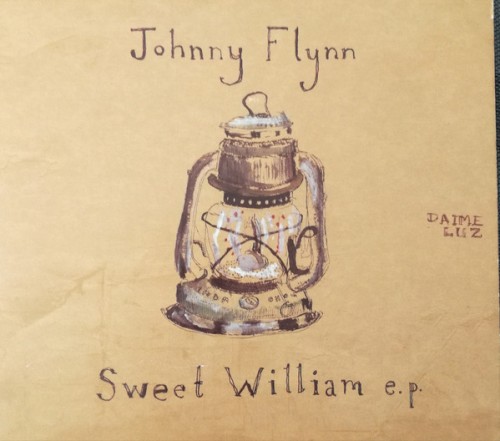 Johnny Flynn
DAIME
LUZ
Sweet William e.p.